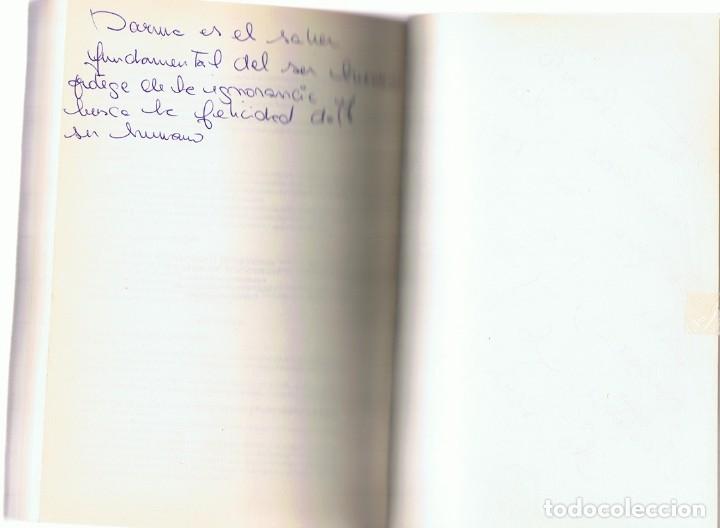 Darma es el saber
fundamental del ser humano
protege de la ignorancia y
busca la felicidad del
ser humano
todocoleccion